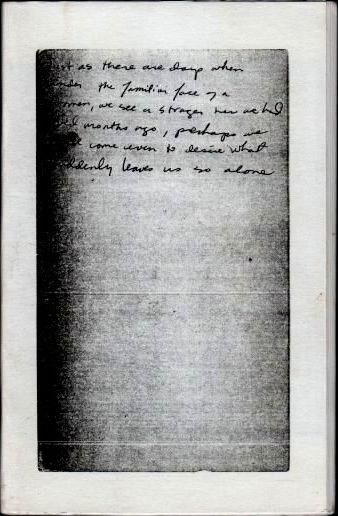 st as there are days when
under the familiar face of a
woman, we see a stranger her we had
months ago, perhaps we
come even to desire what
suddenly leaves us so alone